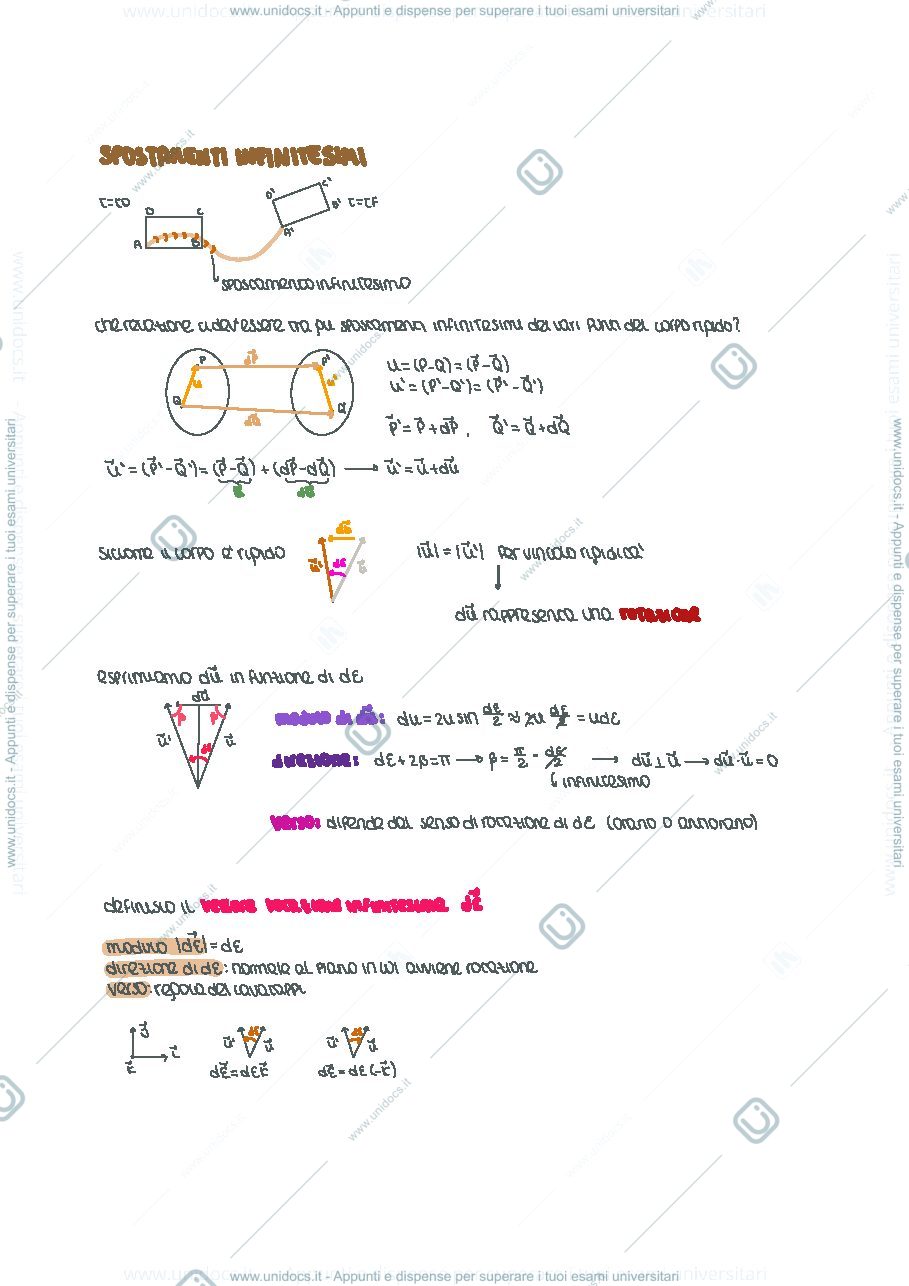 www.unidocs.it - Appunti e dispense per superare i tuoi esami universitari
SPOSTAMENTI INFINITESIMI
t=t0 D C A B
D' C' B' A' t=tF
spostamento infinitesimo
che relazione ci dev'essere tra gli spostamenti infinitesimi dei vari punti del corpo rigido?
P dP⃗ P' u u' Q dQ⃗ Q'
u=(P-Q)=(P⃗-Q⃗)
u'=(P'-Q')=(P⃗'-Q⃗')
P⃗'=P⃗+dP⃗, Q⃗'=Q⃗+dQ⃗
u⃗'=(P⃗'-Q⃗')=(P⃗-Q⃗)+(dP⃗-dQ⃗) → u⃗'=u⃗+du⃗
u⃗ du⃗
siccome il corpo e' rigido
du⃗ u⃗' dε u⃗
|u⃗|=|u⃗'| per vincolo rigidita'
du⃗ rappresenta una rotazione
esprimiamo du⃗ in funzione di dε
du⃗ β β u⃗' dε u⃗
modulo di du⃗: du=2u sin dε/2 ≈ 2u dε/2 = u dε
direzione: dε+2β=π → β=π/2 - dε/2 → du⃗⊥u⃗ → du⃗·u⃗=0
infinitesimo
verso: dipende dal senso di rotazione di dε (orario o antiorario)
definisco il vettore rotazione infinitesima dε⃗
modulo |dε⃗|=dε
direzione di dε: normale al piano in cui avviene rotazione
verso: regola del cavatappi
j⃗ i⃗ k⃗
u⃗' dε u⃗
u⃗' dε u⃗
dε⃗=dεk⃗
dε⃗=dε(-k⃗)
www.unidocs.it - Appunti e dispense per superare i tuoi esami universitari